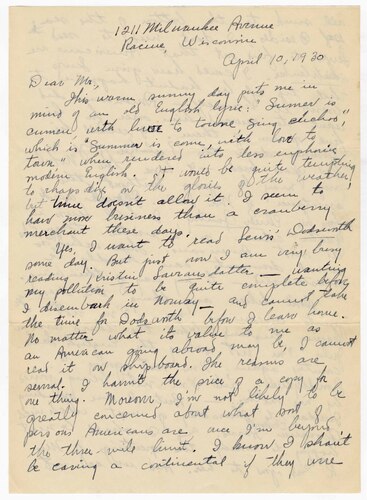 1211 Milwaukee Avenue
Racine, Wisconsin
April 10, 1930
Dear Ma,
This warm, sunny day puts me in
mind of an old English lyric: "Sumer is
cumen, with luve to toune, Sing cuchoo,"
which is "Summer is come, with love to
town" when rendered into less euphonic
modern English. It would be quite tempting
to rhapsodize on the glories of the weather,
but time doesn't allow it. I seem to
have more business than a cranberry
merchant these days.
Yes, I want to read Lewis' Dodsworth
some day. But just now I am very busy
reading Kristin Lavransdatter — wanting
my pollution to be quite complete before
I disembark in Norway — and cannot take
the time for Dodsworth before I leave home.
No matter what its value to me as
an American going abroad may be, I cannot
read it on shipboard. The reasons are
several. I haven't the price of a copy for
one thing. Moreover, I'm not likely to be
greatly concerned about what sort of
persons Americans are once I'm beyond
the three-mile limit. I know I shan't
be caring a continental if they were